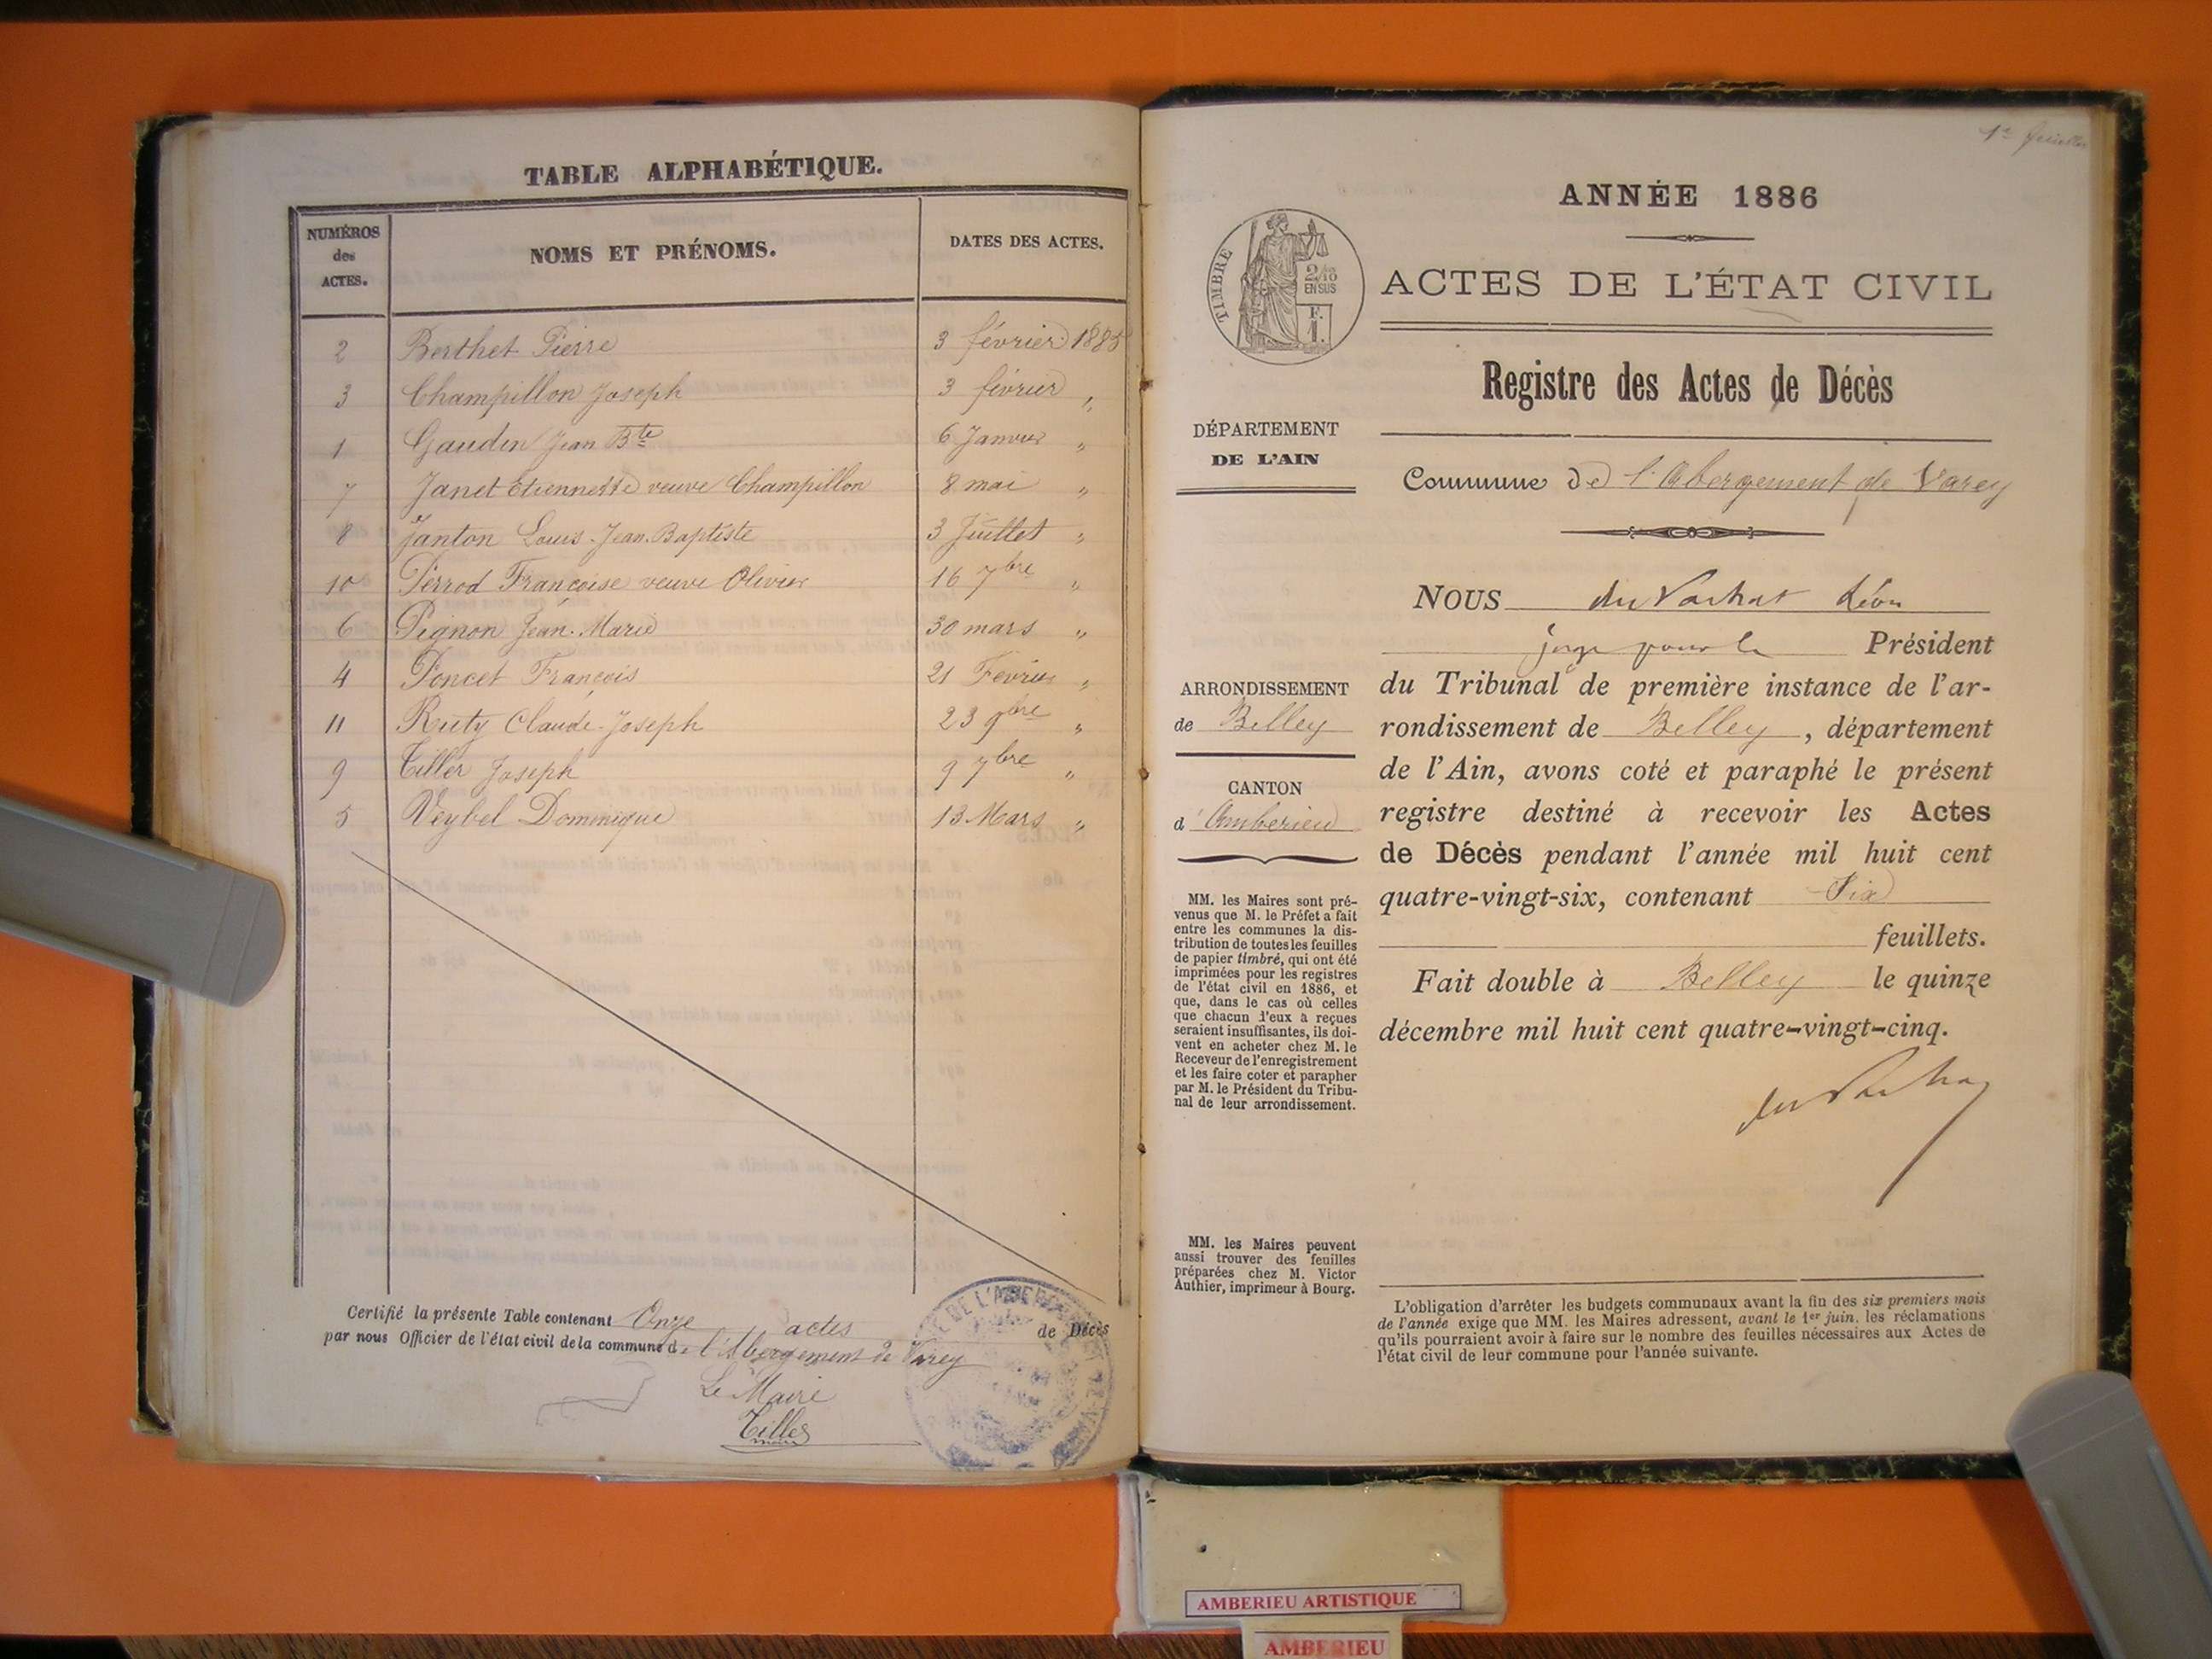 TABLE ALPHABÉTIQUE.
NUMÉROS
des
ACTES.
NOMS ET PRÉNOMS.
DATES DES ACTES.
2 Berthet Pierre 3 février 1885
3 Champillon Joseph 3 février "
1 Gaudin Jean Bte 6 Janvier "
7 Janet Etiennette veuve Champillon 8 mai "
8 Janton Louis-Jean-Baptiste 3 Juillet "
10 Perrod Françoise veuve Olivier 16 7bre "
6 Pignon Jean-Marie 30 mars "
4 Poncet François 21 Février "
11 Ruty Claude-Joseph 23 9bre "
9 Tiller Joseph 9 7bre "
5 Veybel Dominique 13 Mars "
Certifié la présente Table contenant Onze actes de Décès
par nous Officier de l'état civil de la commune de l'Abergement de Varey
Le Maire
Tiller
1er feuillet
ANNÉE 1886
TIMBRE
2/10
EN SUS
F.
1.
ACTES DE L'ÉTAT CIVIL
Registre des Actes de Décès
DÉPARTEMENT
DE L'AIN
Commune de l'Abergement de Varey
NOUS du Vachat Léon
juge pour le Président
du Tribunal de première instance de l'ar-
rondissement de Belley, département
de l'Ain, avons coté et paraphé le présent
registre destiné à recevoir les Actes
de Décès pendant l'année mil huit cent
quatre-vingt-six, contenant Six
feuillets.
Fait double à Belley le quinze
décembre mil huit cent quatre-vingt-cinq.
du Vachat
ARRONDISSEMENT
de Belley
CANTON
d'Ambérieu
MM. les Maires sont pré-
venus que M. le Préfet a fait
entre les communes la dis-
tribution de toutes les feuilles
de papier timbré, qui ont été
imprimées pour les registres
de l'état civil en 1886, et
que, dans le cas où celles
que chacun d'eux à reçues
seraient insuffisantes, ils doi-
vent en acheter chez M. le
Receveur de l'enregistrement
et les faire coter et parapher
par M. le Président du Tribu-
nal de leur arrondissement.
MM. les Maires peuvent
aussi trouver des feuilles
préparées chez M. Victor
Authier, imprimeur à Bourg.
L'obligation d'arrêter les budgets communaux avant la fin des six premiers mois
de l'année exige que MM. les Maires adressent, avant le 1er juin, les réclamations
qu'ils pourraient avoir à faire sur le nombre des feuilles nécessaires aux Actes de
l'état civil de leur commune pour l'année suivante.
AMBERIEU ARTISTIQUE
AMBERIEU